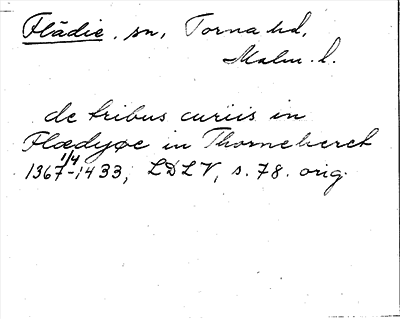 Flädie. sn, Torna hd,
Malm. l.
de tribus curiis in
Flædyøe in Thorneheret
1367-1/4 1433, LDLV, s. 78. orig.